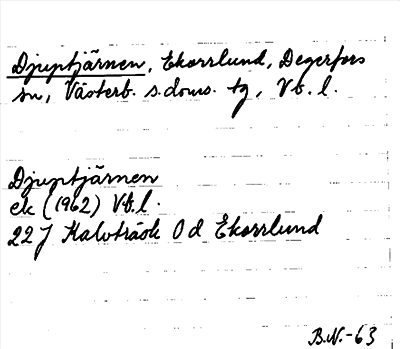 Djuptjärnen, Ekorrlund, Degerfors
sn, Västerb. s. doms. tg, Vb. l.
Djuptjärnen
ek (1962) Vb. l.
22 J Kalvträsk 0 d Ekorrlund
B.N.-63